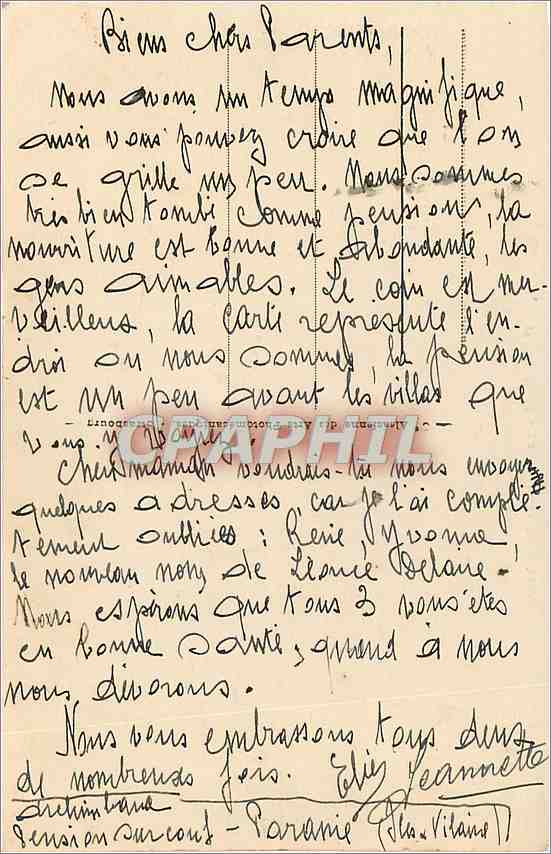 Biens chers Parents,
Nous avons un temps magnifique,
aussi vous pouvez croire que l'on
se grille un peu. Nous sommes
très bien tombé comme pension, la
nourriture est bonne et abondante, les
gens aimables. Le coin est mer-
veilleux, la carte représente l'en-
droi ou nous sommes, la pension
est un peu avant les villas que
vous y voyez.
Alsacienne des Arts Photomécaniques, Strasbourg
CPAPHIL
Chère maman voudrais-tu nous envoyer
quelques adresses, car je l'ai complè-
tement oubliées : René, Yvonne,
le nouveau nom de Léonce Delaire -
Nous espérons que tous 3 vous êtes
en bonne santé, quand à nous
nous dévorons.
Nous vous embrassons tous deux
de nombreuses fois. Jeannette
Pension Surcouf - Paramé (Ille & Vilaine)